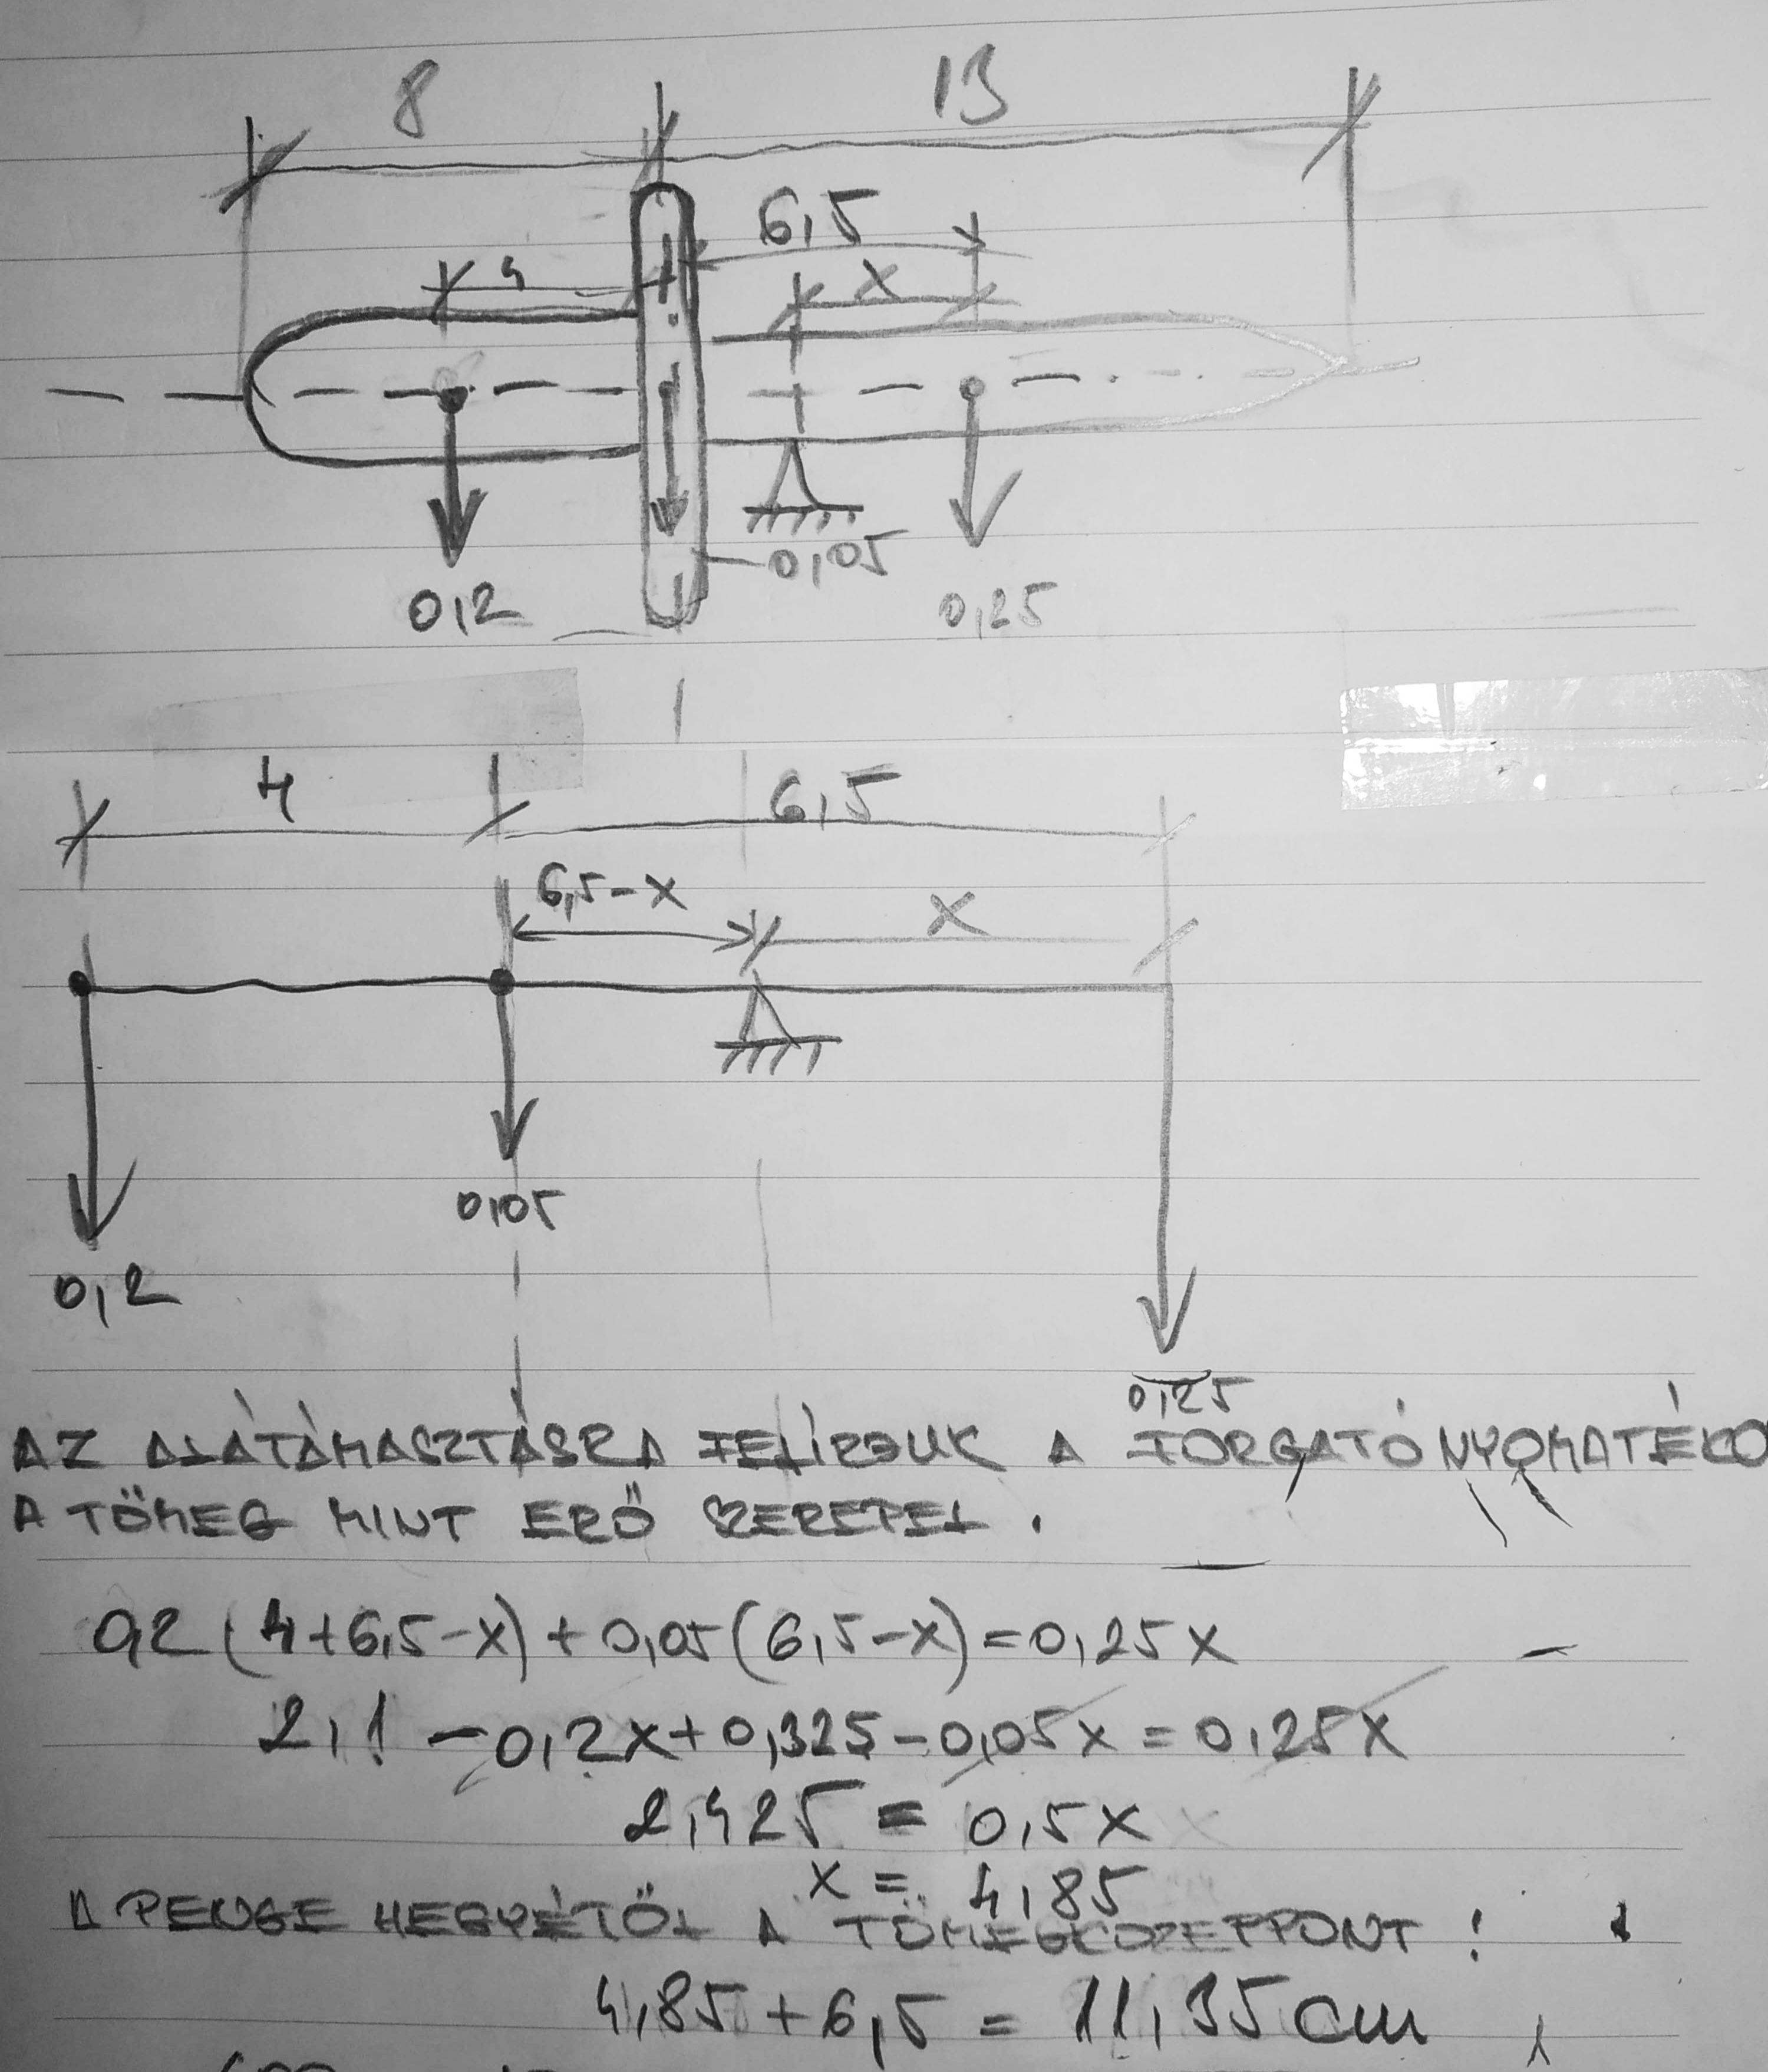 8 13
6,5
4 x
0,05
0,2 0,25
4 6,5
6,5-x x
0,05
0,2
0,25
AZ ALÁTÁMASZTÁSRA FELÍRJUK A FORGATÓNYOMATÉKO
A TÖMEG MINT ERŐ SZEREPEL.
0,2(4+6,5-x)+0,05(6,5-x)=0,25x
2,1-0,2x+0,325-0,05x=0,25x
2,425=0,5x
x=4,85
A PENGE HEGYÉTŐL A TÖMEGKÖZÉPPONT:
4,85+6,5=11,35cm